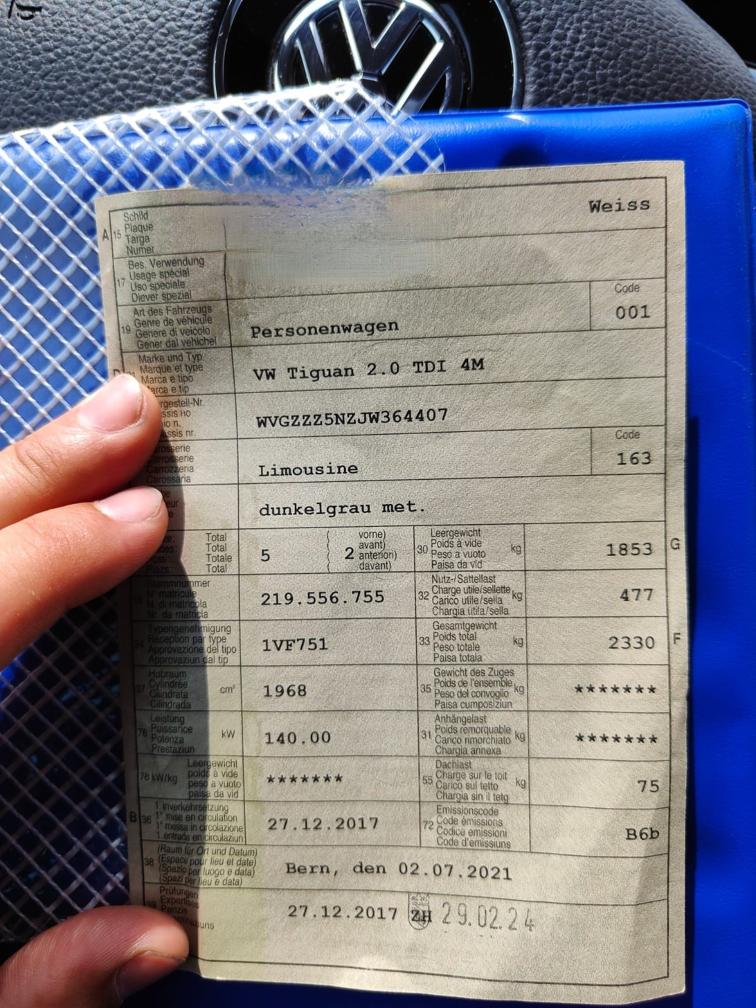 A 15 Schild
Plaque
Targa
Numer
Weiss
17 Bes. Verwendung
Usage spécial
Uso speciale
Diever spezial
19 Art des Fahrzeugs
Genre de véhicule
Genere di veicolo
Gener dal vehichel
Personenwagen
Code
001
Marke und Typ
Marque et type
Marca e tipo
e tip
VW Tiguan 2.0 TDI 4M
WVGZZZ5NZJW364407
Carrozzeria
Carossaria
Limousine
Code
163
dunkelgrau met.
Total
Total
Totale
Total
5
2
vorne)
avant)
anteriori)
davant)
30 Leergewicht
Poids à vide
Peso a vuoto
Paisa da vid
kg
1853
G
219.556.755
32 Nutz-/Sattellast
Charge utile/sellette
Carico utile/sella
Chargia utila/sella
kg
477
Typengenehmigung
Réception par type
Approvazione del tipo
Approvaziun dal tip
1VF751
33 Gesamtgewicht
Poids total
Peso totale
Paisa totala
kg
2330
F
Hubraum
Cylindrée
Cilindrata
Cilindrada
cm³
1968
35 Gewicht des Zuges
Poids de l'ensemble
Peso del convoglio
Paisa cumposiziun
kg
*******
76 Leistung
Puissance
Potenza
Prestaziun
kW
140.00
31 Anhängelast
Poids remorquable
Carico rimorchiato
Chargia annexa
kg
*******
78 kW/kg
Leergewicht
poids à vide
peso a vuoto
paisa da vid
*******
55 Dachlast
Charge sur le toit
Carico sul tetto
Chargia sin il tetg
kg
75
B 36 1. Inverkehrsetzung
1re mise en circulation
1a messa in circolazione
1. entrada en circulaziun
27.12.2017
72 Emissionscode
Code émissions
Codice emissioni
Code d'emissiuns
B6b
38 (Raum für Ort und Datum)
(Espace pour lieu et date)
(Spazio per luogo e data)
(Spazi per lieu e data)
Bern, den 02.07.2021
Prüfungen
27.12.2017 ZH 29.02.24